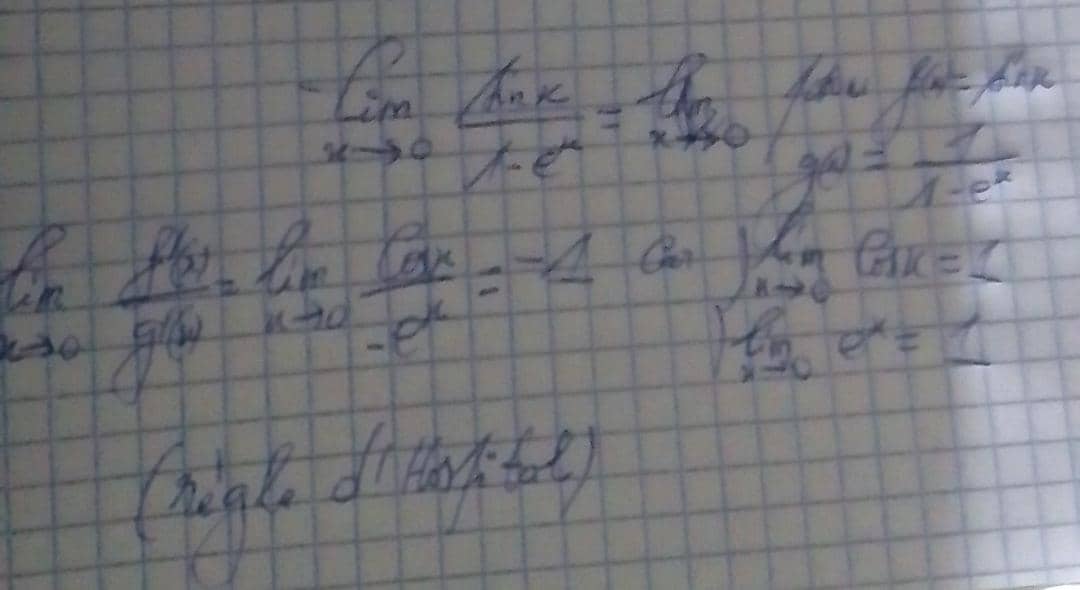 lim x→0 sin x / 1 - e^x = lim x→0 f(x) = sin x
g(x) = 1 / 1 - e^x
lim x→0 f'(x) / g'(x) = lim x→0 cos x / -e^x = -1 car lim x→0 cos x = 1
lim x→0 e^x = 1
(règle d'Hospital)